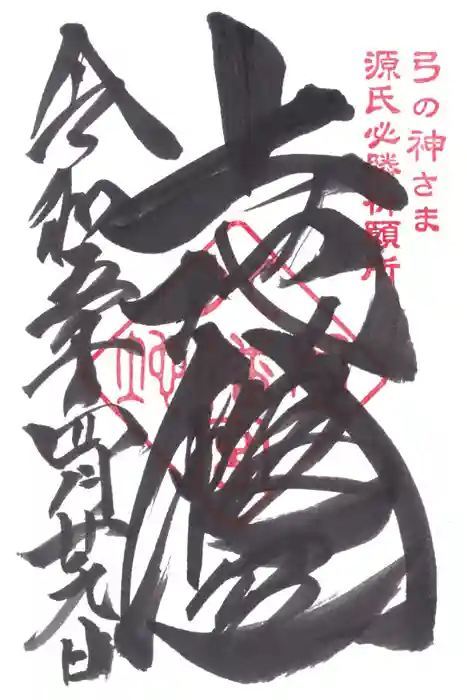 弓の神さま
源氏必勝祈願所
上地八幡宮
令和五年四月廿九日